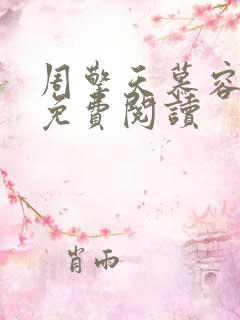 周擎天慕容
免費閱讀
肖雨